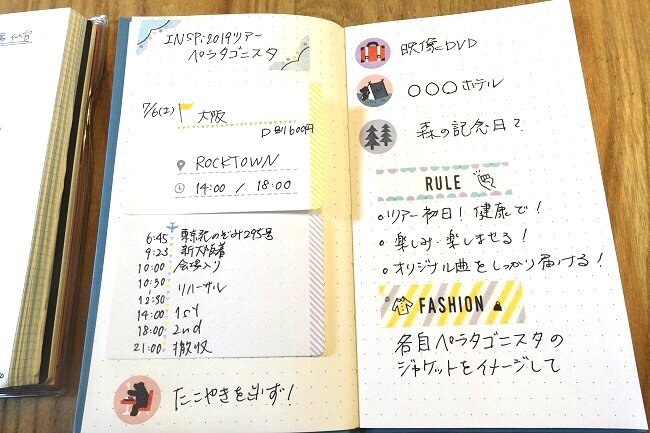 INSPi2019ツアー
ペラタゴニスタ
7/6(土) 大阪
D別600円
ROCKTOWN
14:00 / 18:00
6:45 東京発のぞみ295号
9:23 新大阪着
10:00 会場入り
10:30 リハーサル
12:30
14:00 1st
18:00 2nd
21:00 撤収
たこやきを必ず!
映像DVD
○○○ホテル
森の記念日?
RULE
○ツアー初日!健康で!
○楽しみ、楽しませる!
○オリジナル曲をしっかり届ける!
FASHION
各自ペラタゴニスタの
ジャケットをイメージして